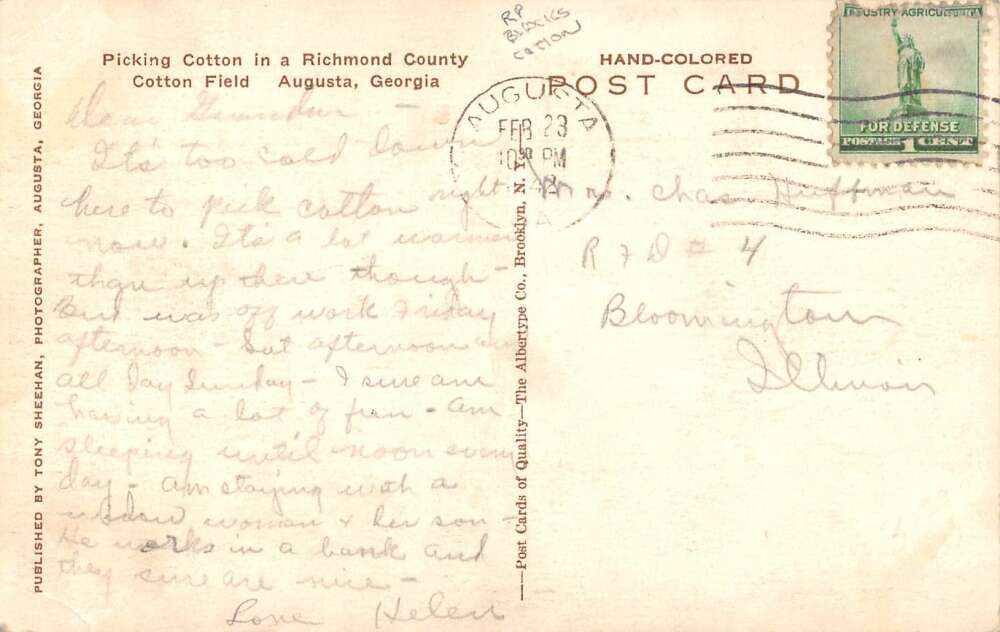 RP
BLACKS
COTTON
Picking Cotton in a Richmond County
Cotton Field Augusta, Georgia
HAND-COLORED
POST CARD
INDUSTRY AGRICULTURE
FOR DEFENSE
POSTAGE 1 CENT
AUGUSTA
FEB 23
10 30 PM
42
GA
PUBLISHED BY TONY SHEEHAN, PHOTOGRAPHER, AUGUSTA, GEORGIA
Dear
It's too cold down
here to pick cotton right
now. It's a lot warmer
than up there though—
was off work Friday
afternoon - Sat afternoon and
all day Sunday - I sure am
having a lot of fun - am
sleeping until noon every
day - am staying with a
widow woman & her son -
He works in a bank and
they sure are nice -
Love Helen
Post Cards of Quality—The Albertype Co., Brooklyn, N. Y.
Mrs. Chas Huffman
R F D # 4
Bloomington
Illinois